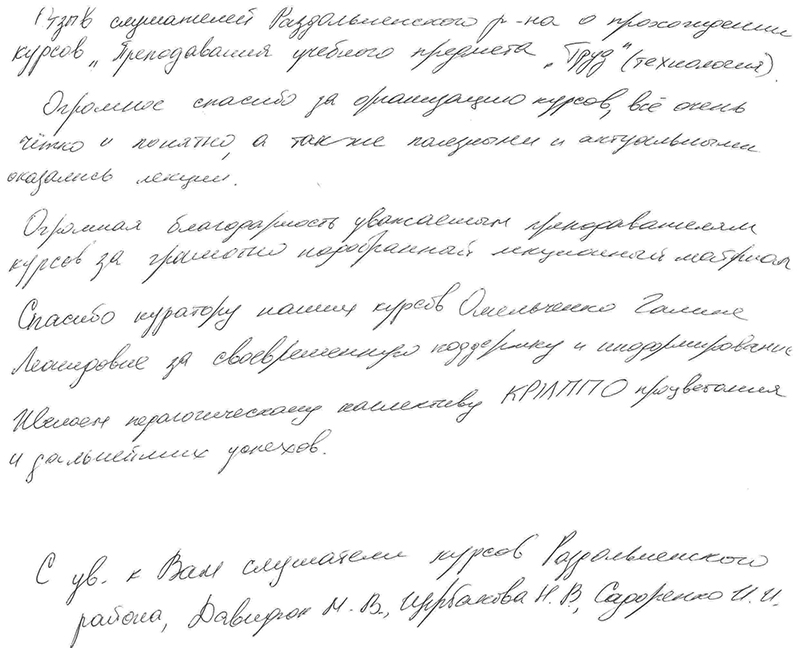 Отзыв слушателей Раздольненского р-на о прохождении
курсов „Преподавания учебного предмета „Труд" (технология).
Огромное спасибо за организацию курсов, всё очень
чётко и понятно, а так же полезными и актуальными
оказались лекции.
Огромная благодарность уважаемым преподавателям
курсов за грамотно подобранный лекционный материал
Спасибо куратору наших курсов Омельченко Галине
Леонидовне за своевременную поддержку и информирование
Желаем педагогическому коллективу КРИППО процветания
и дальнейших успехов.
С ув. к Вам слушатели курсов Раздольненского
района, Давидюк М. В., Щербакова Н. В., Сидоренко И. И.